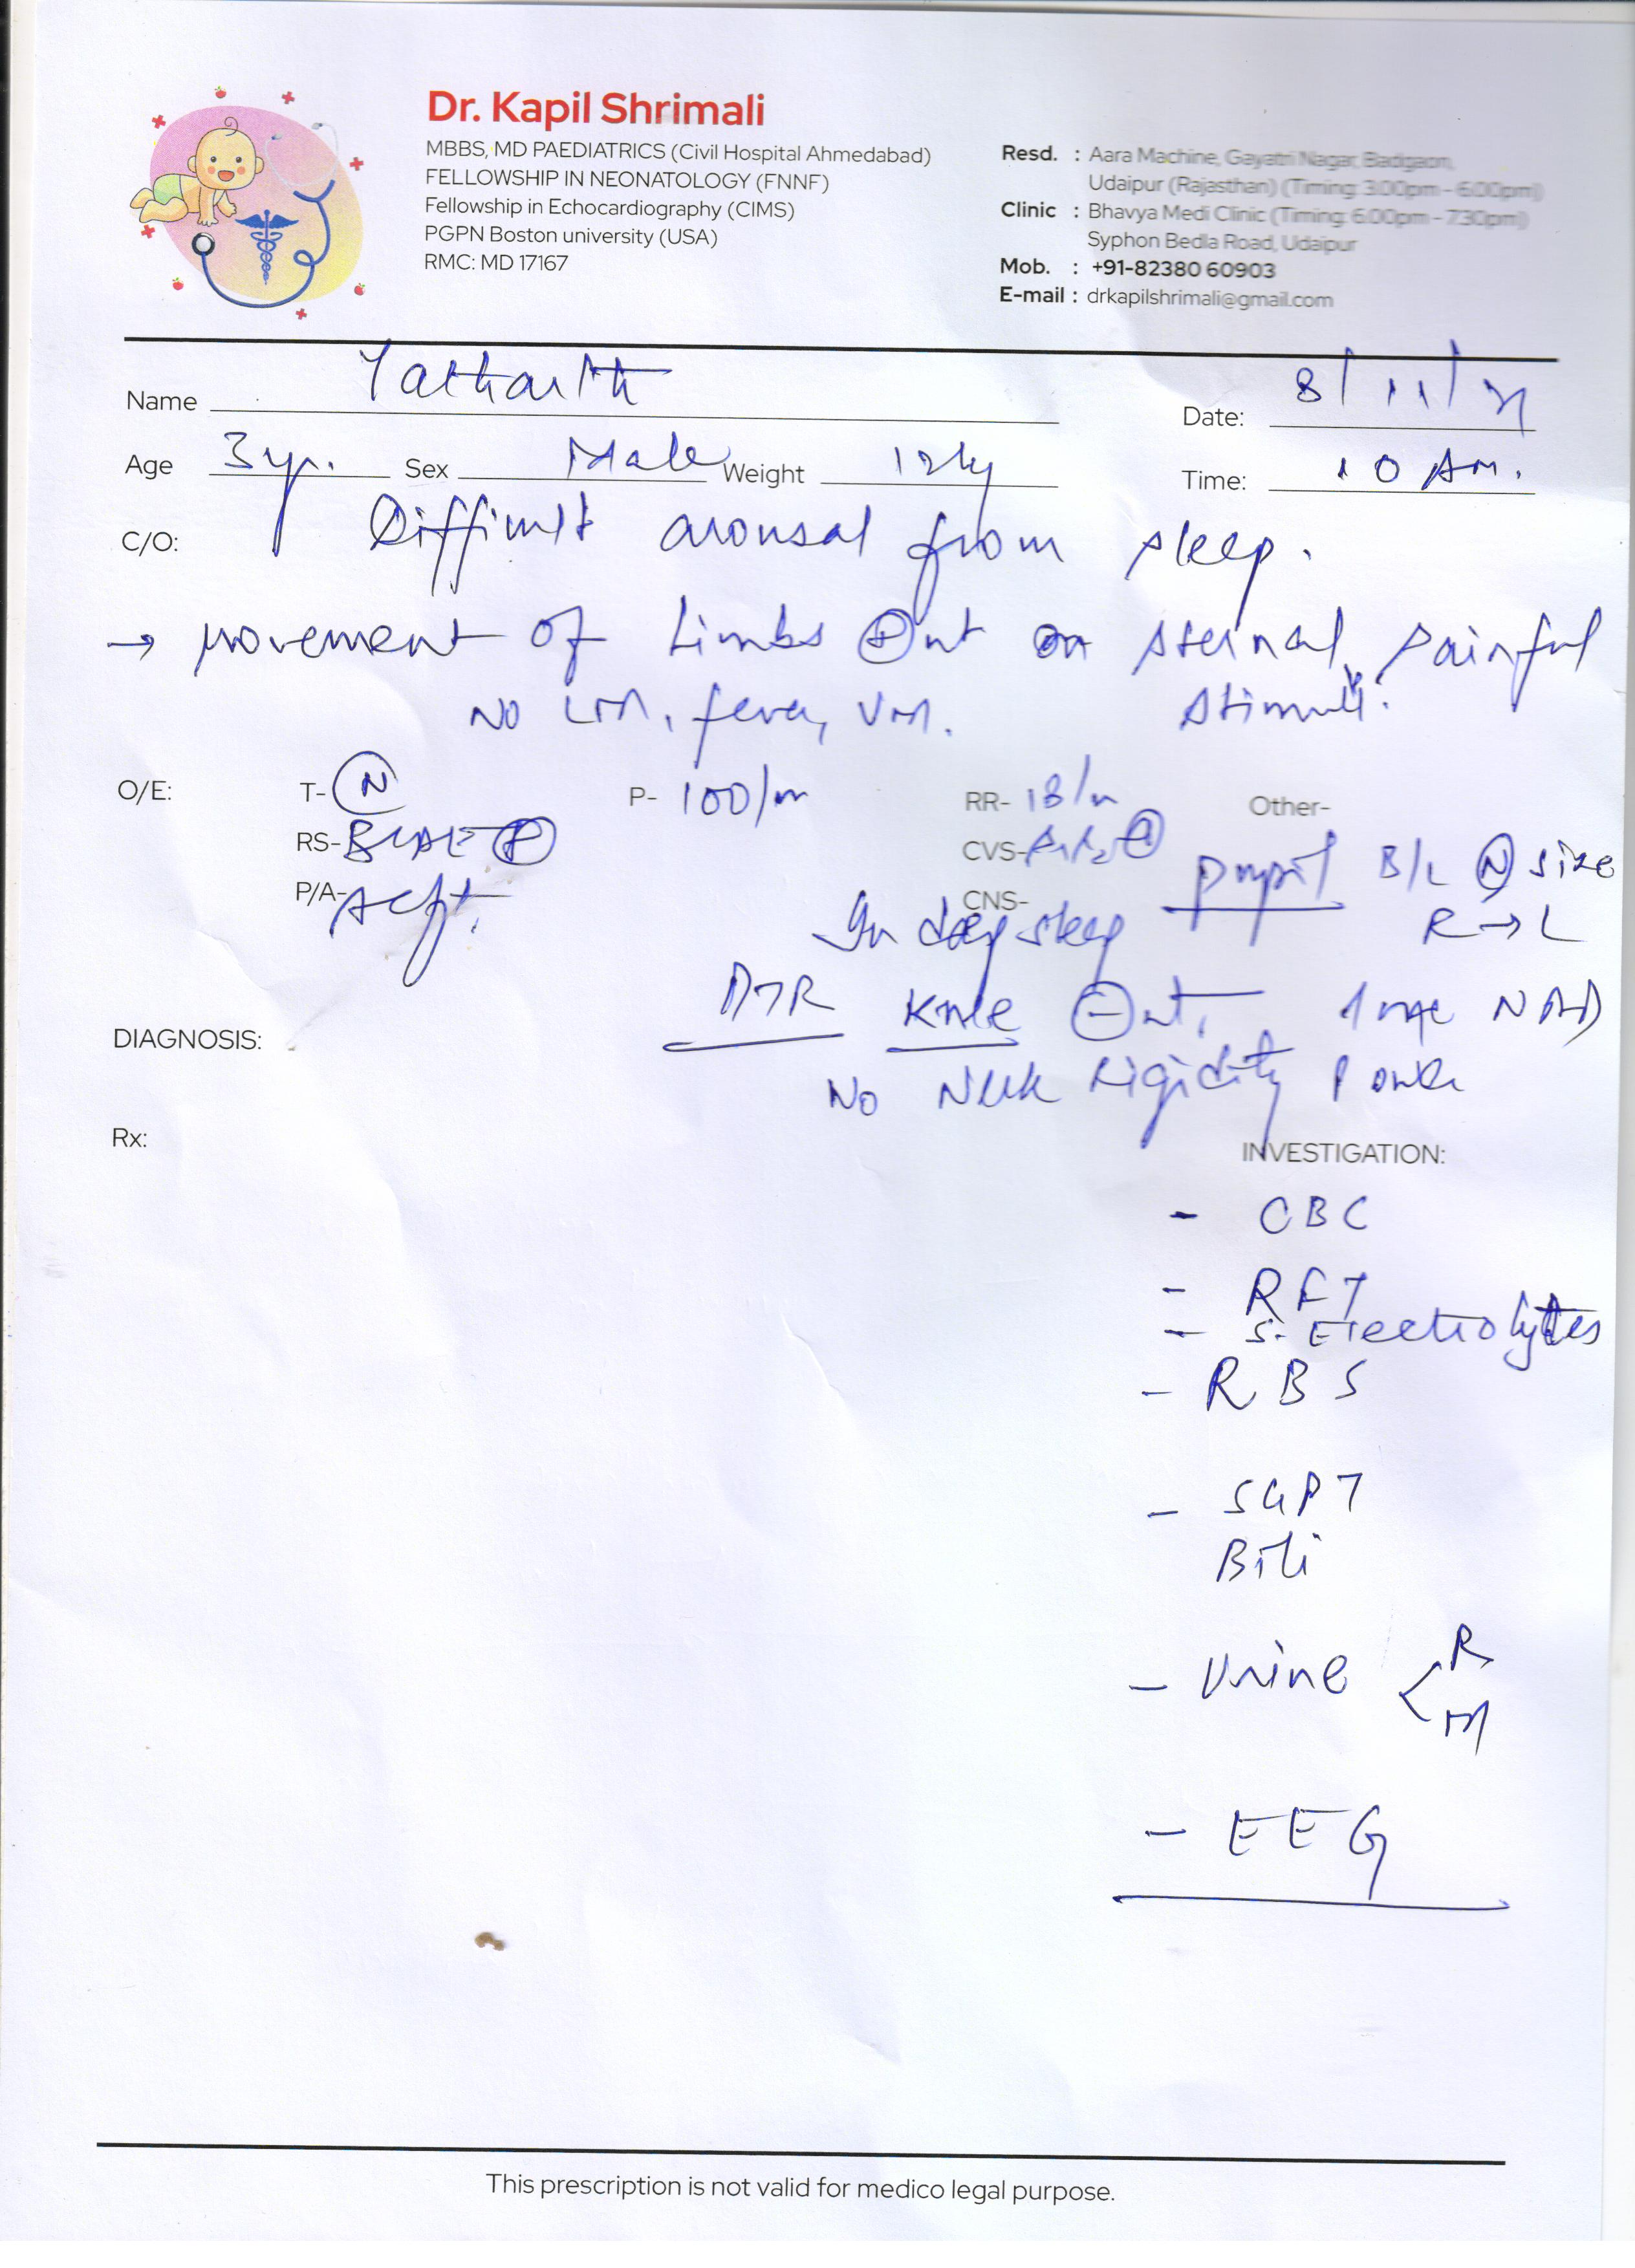 Dr. Kapil Shrimali
MBBS, MD PAEDIATRICS (Civil Hospital Ahmedabad)
FELLOWSHIP IN NEONATOLOGY (FNNF)
Fellowship in Echocardiography (CIMS)
PGPN Boston university (USA)
RMC: MD 17167
Resd. : Aara Machine, Gayatri Nagar, Badgaon,
Udaipur (Rajasthan) (Timing: 3:00pm - 6:00pm)
Clinic : Bhavya Medi Clinic (Timing: 6:00pm - 7:30pm)
Syphon Bedla Road, Udaipur
Mob. : +91-82380 60903
E-mail : drkapilshrimali@gmail.com
Name Yatharth Date: 8/11/
Age 3yr. Sex Male Weight 12kg Time: 10 Am.
C/O: Difficult arousal from sleep.
→ Movement of Limbs ⊕nt on sternal, painful
No , fever, stimuli.
O/E: T- Ⓝ P- 100/m RR- 18/m Other-
RS- BLAE ⊕ CVS-
P/A- Soft. CNS- In deep sleep pupil B/L Ⓝ size
R → L
DTR Knee ⊖nt, NAD
DIAGNOSIS:
No Neck Rigidity Power
Rx:
INVESTIGATION:
- CBC
- RFT
- S. Electrolytes
- RBS
- SGPT
Bili
- Urine < R
M
- EEG
This prescription is not valid for medico legal purpose.